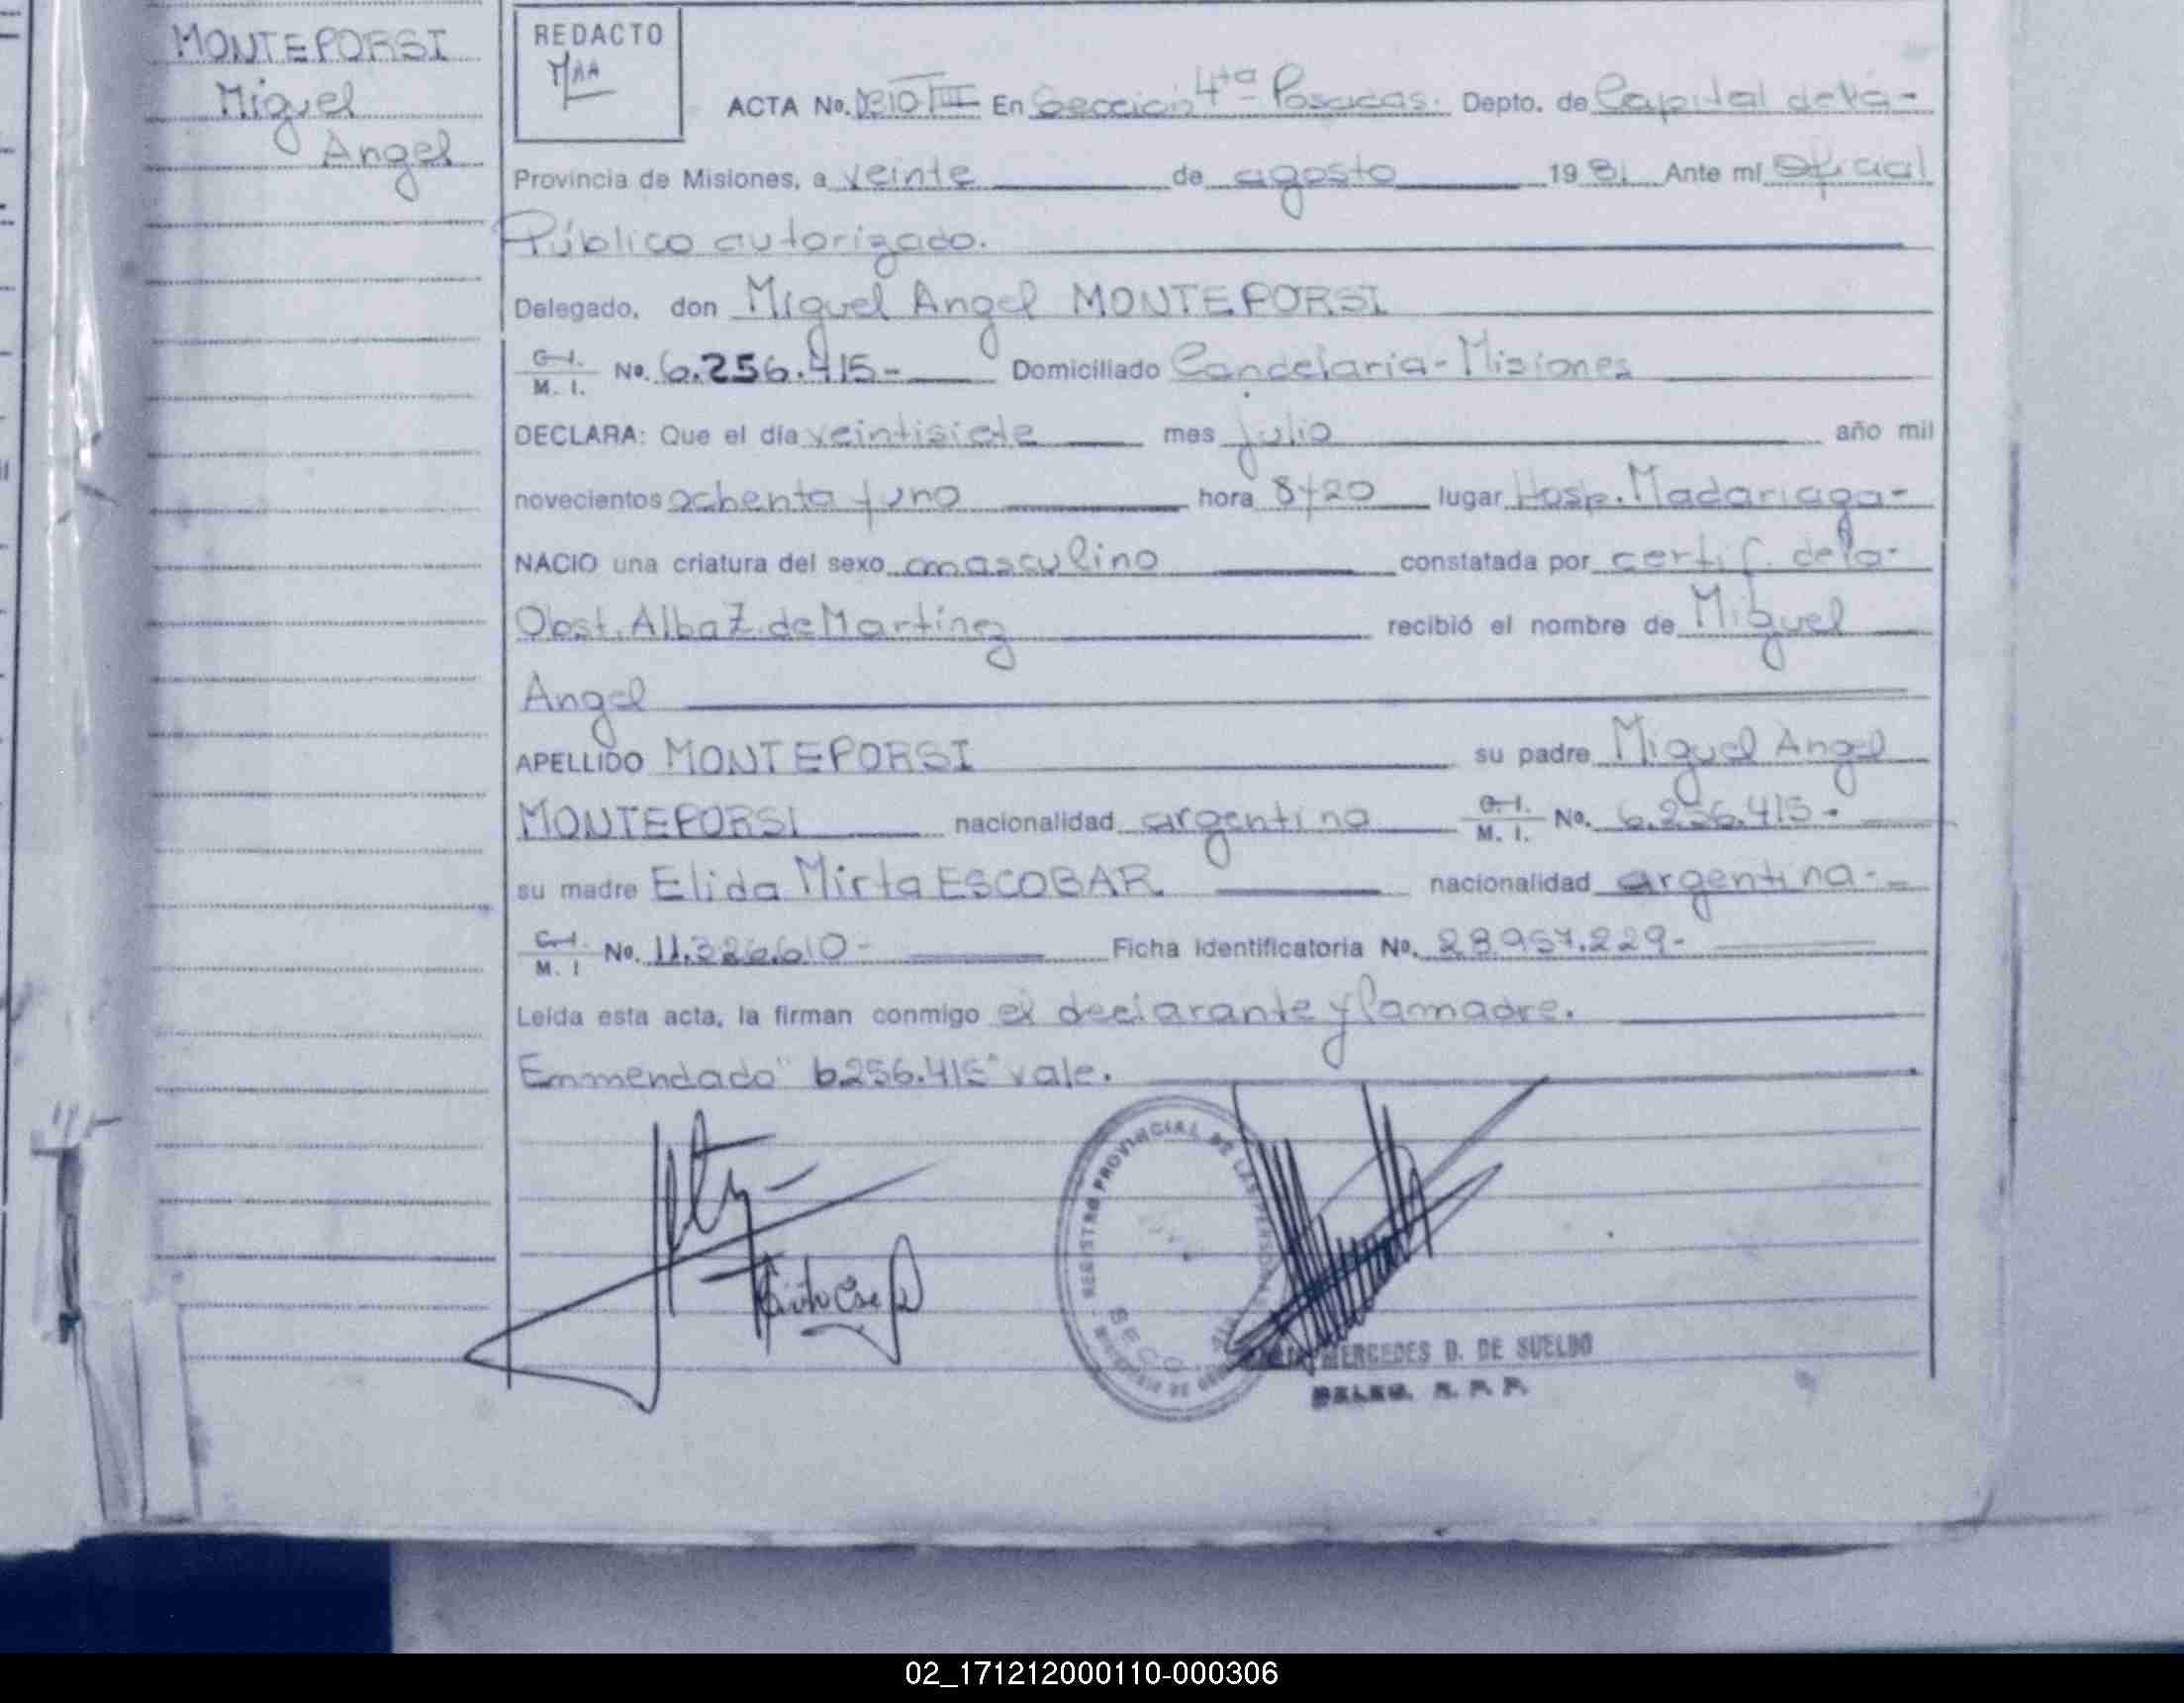 MONTEPORSI
Miguel
Angel
REDACTO
ACTA No. En Sección 4ta Posadas. Depto. de Capital de la-
Provincia de Misiones, a veinte de agosto 1981 Ante mí Oficial
Público autorizado.
Delegado, don Miguel Angel MONTEPORSI
C.I. M. I. No. 6.256.415- Domiciliado Candelaria-Misiones
DECLARA: Que el día veintisiete mes julio año mil
novecientos ochenta y uno hora 8y20 lugar Hosp. Madariaga-
NACIO una criatura del sexo masculino constatada por certif. de la-
Obst. Alba Z. de Martínez recibió el nombre de Miguel
Angel
APELLIDO MONTEPORSI su padre Miguel Angel
MONTEPORSI nacionalidad argentina C.I. M. I. No. 6.256.415-
su madre Elida Mirta ESCOBAR. nacionalidad argentina-
C.I. M. I No. 11.326.610- Ficha Identificatoria No. 28.957.229-
Leída esta acta, la firman conmigo el declarante y la madre.
Enmendado "6256.415" vale.
REGISTRO PROVINCIAL DE LAS PERSONAS
MERCEDES D. DE SUELDO
DELEG. R. P. P.
02_171212000110-000306